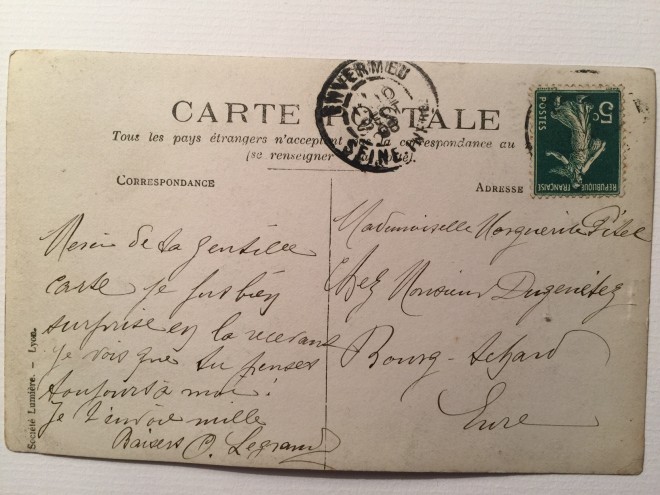 CARTE P TALE
Tous les pays étrangers n'acceptent la correspondance au
(se renseigner
CORRESPONDANCE
ADRESSE
ENVERMEU
SEINE-INFRE
5c
POSTES
REPUBLIQUE FRANÇAISE
Merci de ta gentille
carte je fus bien
surprise en la recevant
je vois que tu penses
toujours à moi.
Je t'envoie mille
Baisers O. Legrand
Mademoiselle Marguerite Pitel
Chez Monsieur
Bourg-Achard
Eure
Société Lumière. - Lyon.